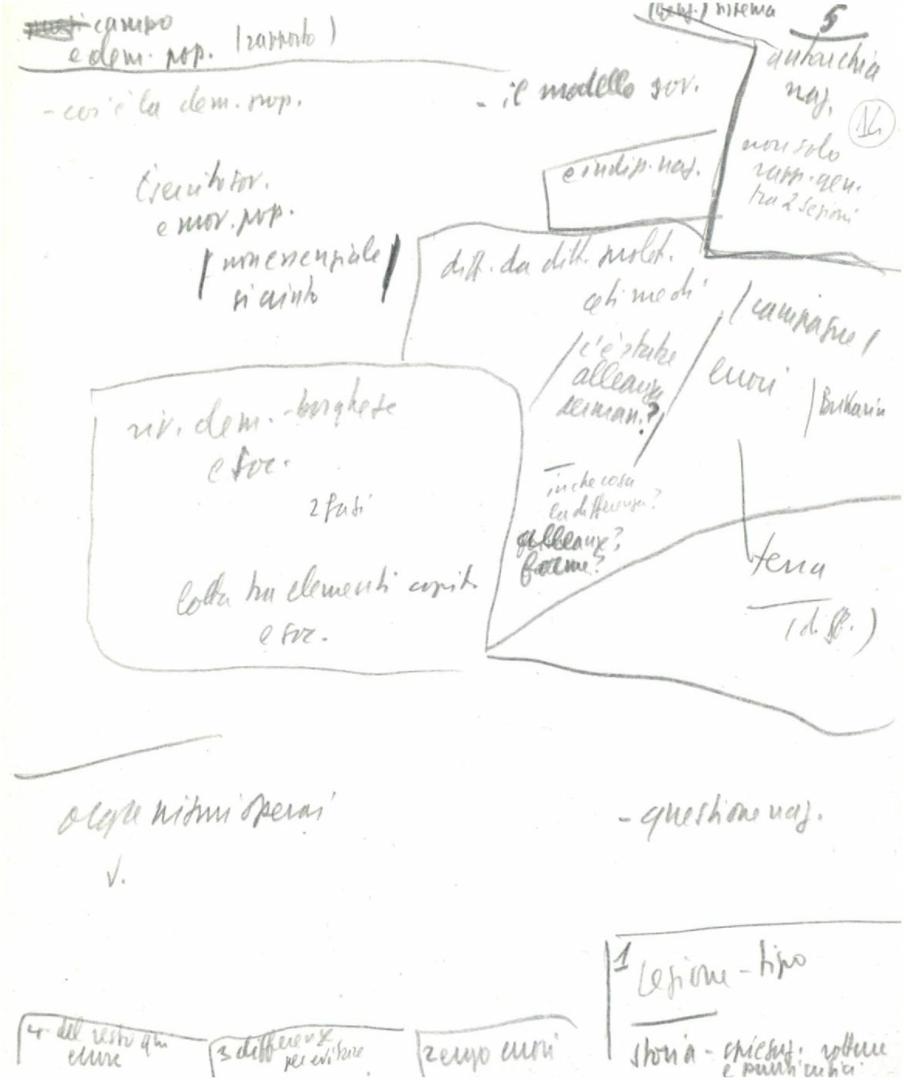 campo
e dem. pop. (rapporto)
(cong.) sistema
5
autarchia
naz.
14
non solo
rapp. gen.
tra 2 sezioni
- cos'è la dem. pop.
- il modello sov.
e indip. naz.
Esercito sov.
e mov. pop.
(non essenziale
si aiuto)
diff. da ditt. prolet.
ceti medi
(c'è state
alleanza
perman.?)
in che cosa
la differenza?
alleanze?
forme?
(campagne)
errori
| Bulkarin
terra
(diff.)
riv. dem. - borghese
e soc.
2 fasi
lotta tra elementi capit.
e soc.
organismi operai
V.
- questione naz.
1
Lezione - tipo
storia - rotture
e punti critici
2 errori
3 differenze
per evitare
4 - del resto qui
errore